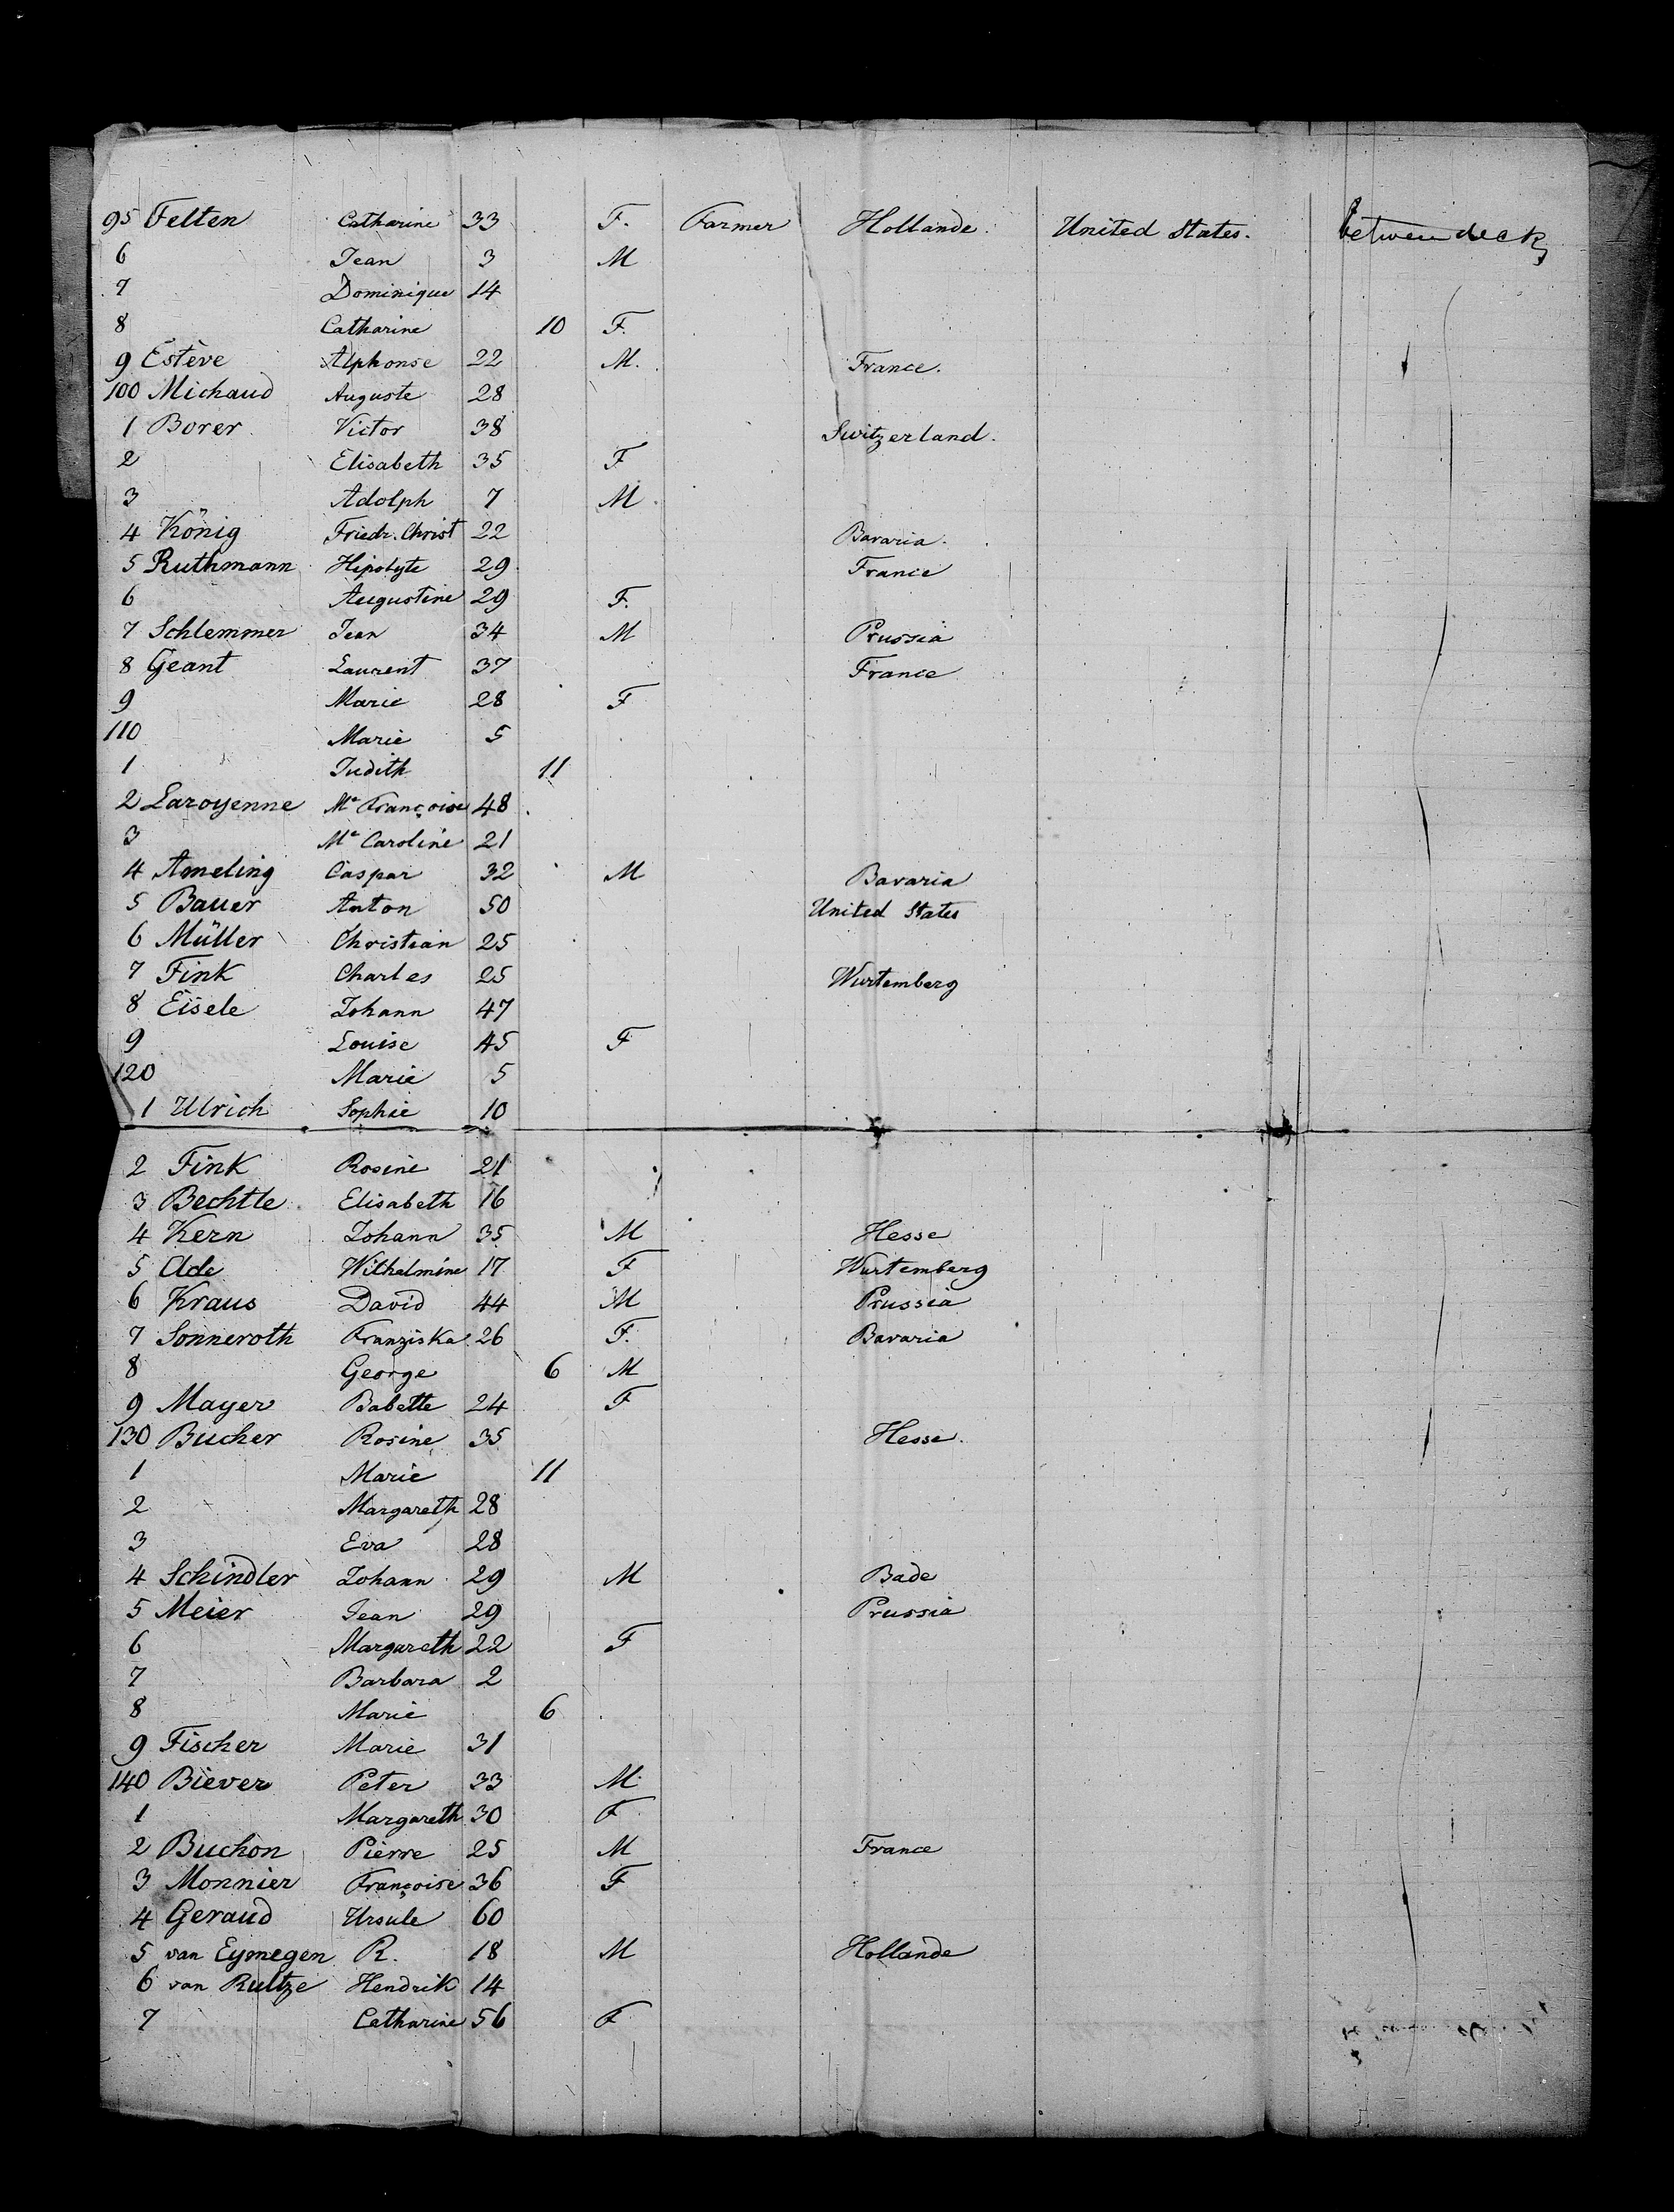 95 Felten Catharine 33 F. Farmer Hollande. United States. between decks
6 Jean 3 M
7 Dominique 14
8 Catharine 10 F.
9 Estève Alphonse 22 M. France.
100 Michaud Auguste 28
1 Borer Victor 38 Switzerland.
2 Elisabeth 35 F
3 Adolph 7 M
4 König Friedr. Christ 22 Bavaria.
5 Ruthmann Hipolyte 29 France
6 Augustine 29 F.
7 Schlemmer Jean 34 M Prussia
8 Geant Laurent 37 France
9 Marie 28 F
110 Marie 5
1 Judith 11
2 Laroyenne Me Françoise 48
3 Me Caroline 21
4 Ameling Caspar 32 M Bavaria
5 Bauer Anton 50 United States
6 Müller Christian 25
7 Fink Charles 25 Wurtemberg
8 Eisele Johann 47
9 Louise 45 F
120 Marie 5
1 Ulrich Sophie 10
2 Fink Rosine 21
3 Bechtle Elisabeth 16
4 Kern Johann 35 M Hesse
5 Ade Wilhelmine 17 F Wurtemberg
6 Kraus David 44 M Prussia
7 Sonneroth Franziska 26 F. Bavaria
8 George 6 M
9 Mayer Babette 24 F
130 Bucher Rosine 35 Hesse.
1 Marie 11
2 Margareth 28
3 Eva 28
4 Schindler Johann 29 M Bade
5 Meier Jean 29 Prussia
6 Margareth 22 F
7 Barbara 2
8 Marie 6
9 Fischer Marie 31
140 Biever Peter 33 M
1 Margareth 30 F
2 Buchon Pierre 25 M France
3 Monnier Françoise 36 F
4 Geraud Ursule 60
5 van Eymegen R. 18 M Hollande
6 van Rultze Hendrik 14
7 Catharine 56 F